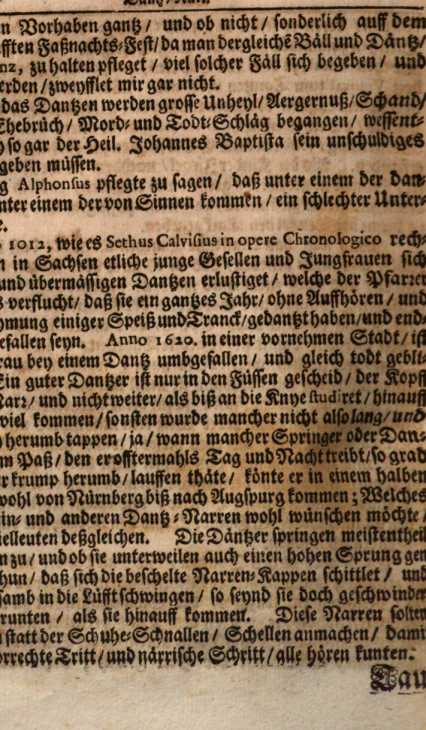 n Vorhaben gantz / und ob nicht / sonderlich auff dem
fften Faßnachts-Fest / da man dergleichē Bäll und Däntz /
nz, zu halten pfleget / viel solcher Fäll sich begeben / und
erden / zweyfflet mir gar nicht.
das Dantzen werden grosse Unheyl / Aergernuß / Schand /
Ehebrüch / Mord- und Todt-Schläg begangen / wessent-
h so gar der Heil. Johannes Baptista sein unschuldiges
geben müssen.
g Alphonsus pflegte zu sagen / daß unter einem der dan-
nter einem der von Sinnen kommen / ein schlechter Unter-
e.
1012, wie es Sethus Calvisius in opere Chronologico rech-
n in Sachsen etliche junge Gesellen und Jungfrauen sich
und übermässigen Dantzen erlustiget / welche der Pfarrer
s verflucht / daß sie ein gantzes Jahr / ohne Auffhören / und
hmung einiger Speiß und Tranck / gedantzt haben / und end-
efallen seyn. Anno 1620. in einer vornehmen Stadt / ist
rau bey einem Dantz umbgefallen / und gleich todt gebli-
Ein guter Dantzer ist nur in den Füssen gescheid / der Kopff
Narr / und nicht weiter / als biß an die Knye studiret / hinauff
viel kommen / sonsten wurde mancher nicht also lang / und
herumb tappen / ja / wann mancher Springer oder Dan-
m Paß / den er offtermahls Tag und Nacht treibt / so grad
r krump herumb / lauffen thäte / könte er in einem halben
wohl von Nürnberg biß nach Augspurg kommen; Welches
in- und anderen Dantz-Narren wohl wünschen möchte /
ielleuten deßgleichen. Die Däntzer springen meistentheil
n zu / und ob sie unterweilen auch einen hohen Sprung gen
hun / daß sich die beschelte Narren-Kappen schittlet / und
samb in die Lüfft schwingen / so seynd sie doch geschwinder
runten / als sie hinauff kommen. Diese Narren solten
n statt der Schuhe-Schnallen / Schellen anmachen / dami
orrechte Tritt / und närrische Schritt / alle hören kunten.
Tau